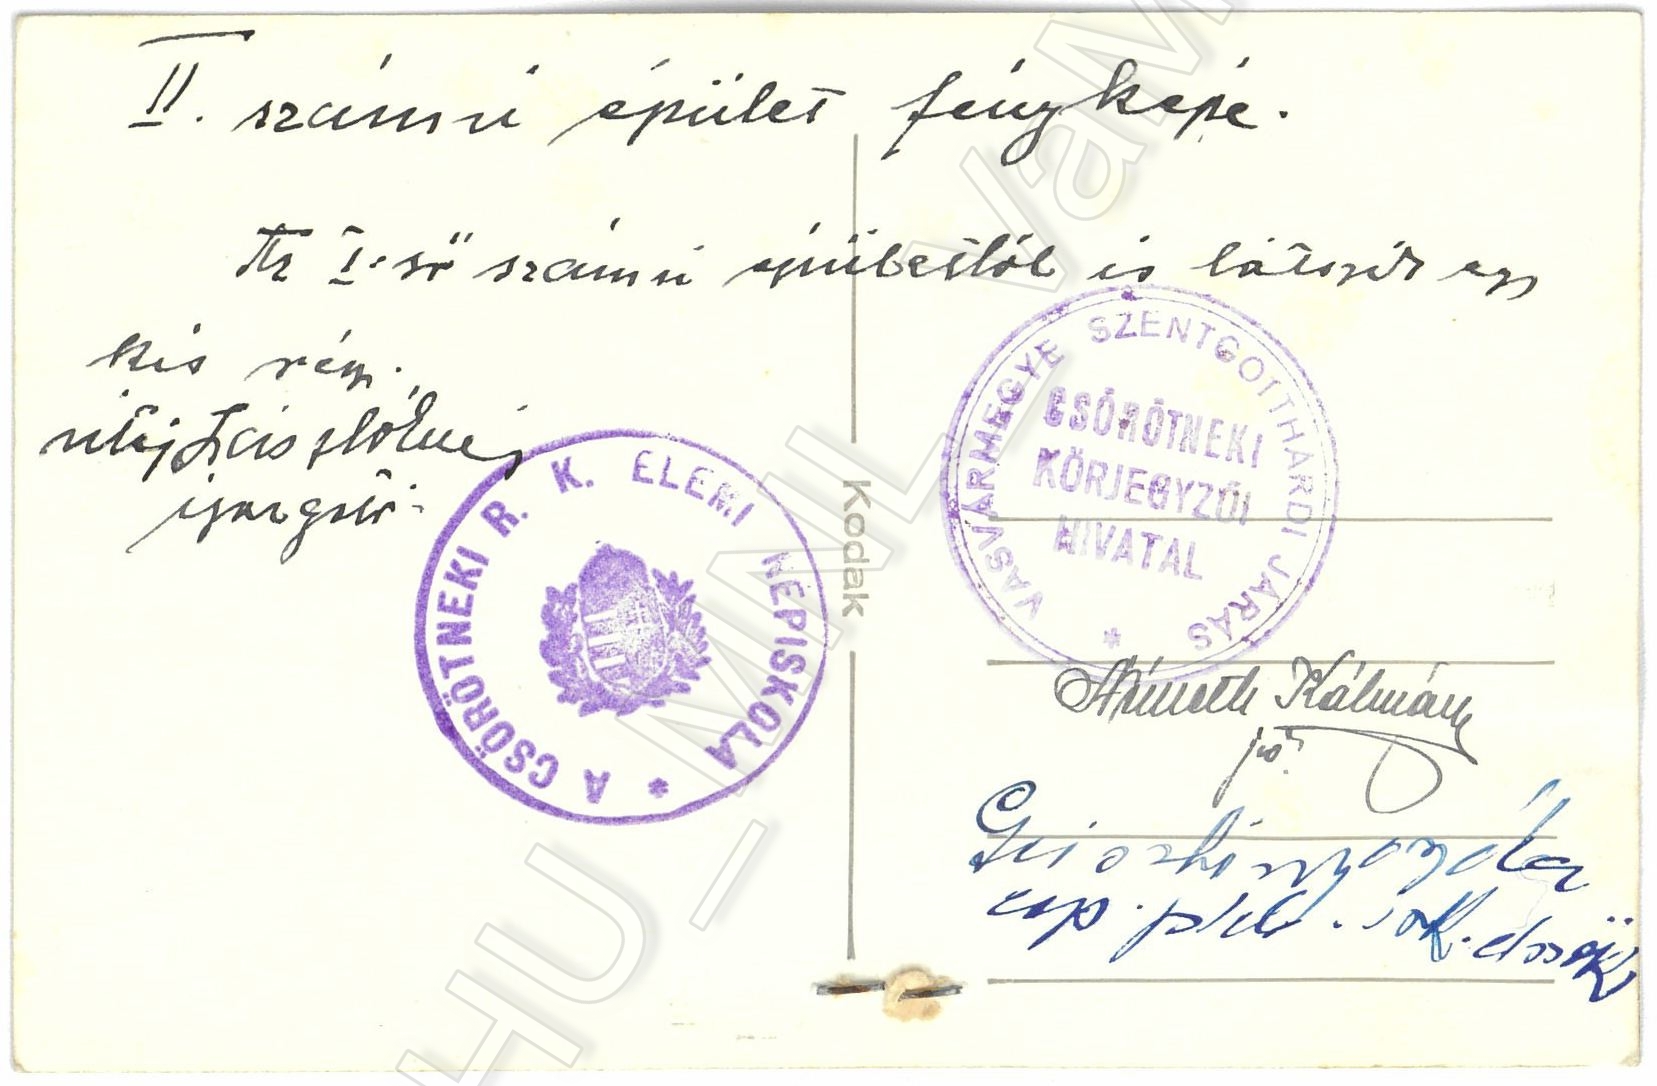 II. számú épület fényképe.
Az I-ső számú épületből is látszik egy
kis rész.
igazgató.
A CSÖRÖTNEKI R. K. ELEMI NÉPISKOLA *
VASVÁRMEGYE SZENTGOTTHÁRDI JÁRÁS *
CSÖRÖTNEKI
KÖRJEGYZŐI
HIVATAL
Kodak
Németh Kálmán
HU_MNL_VaM